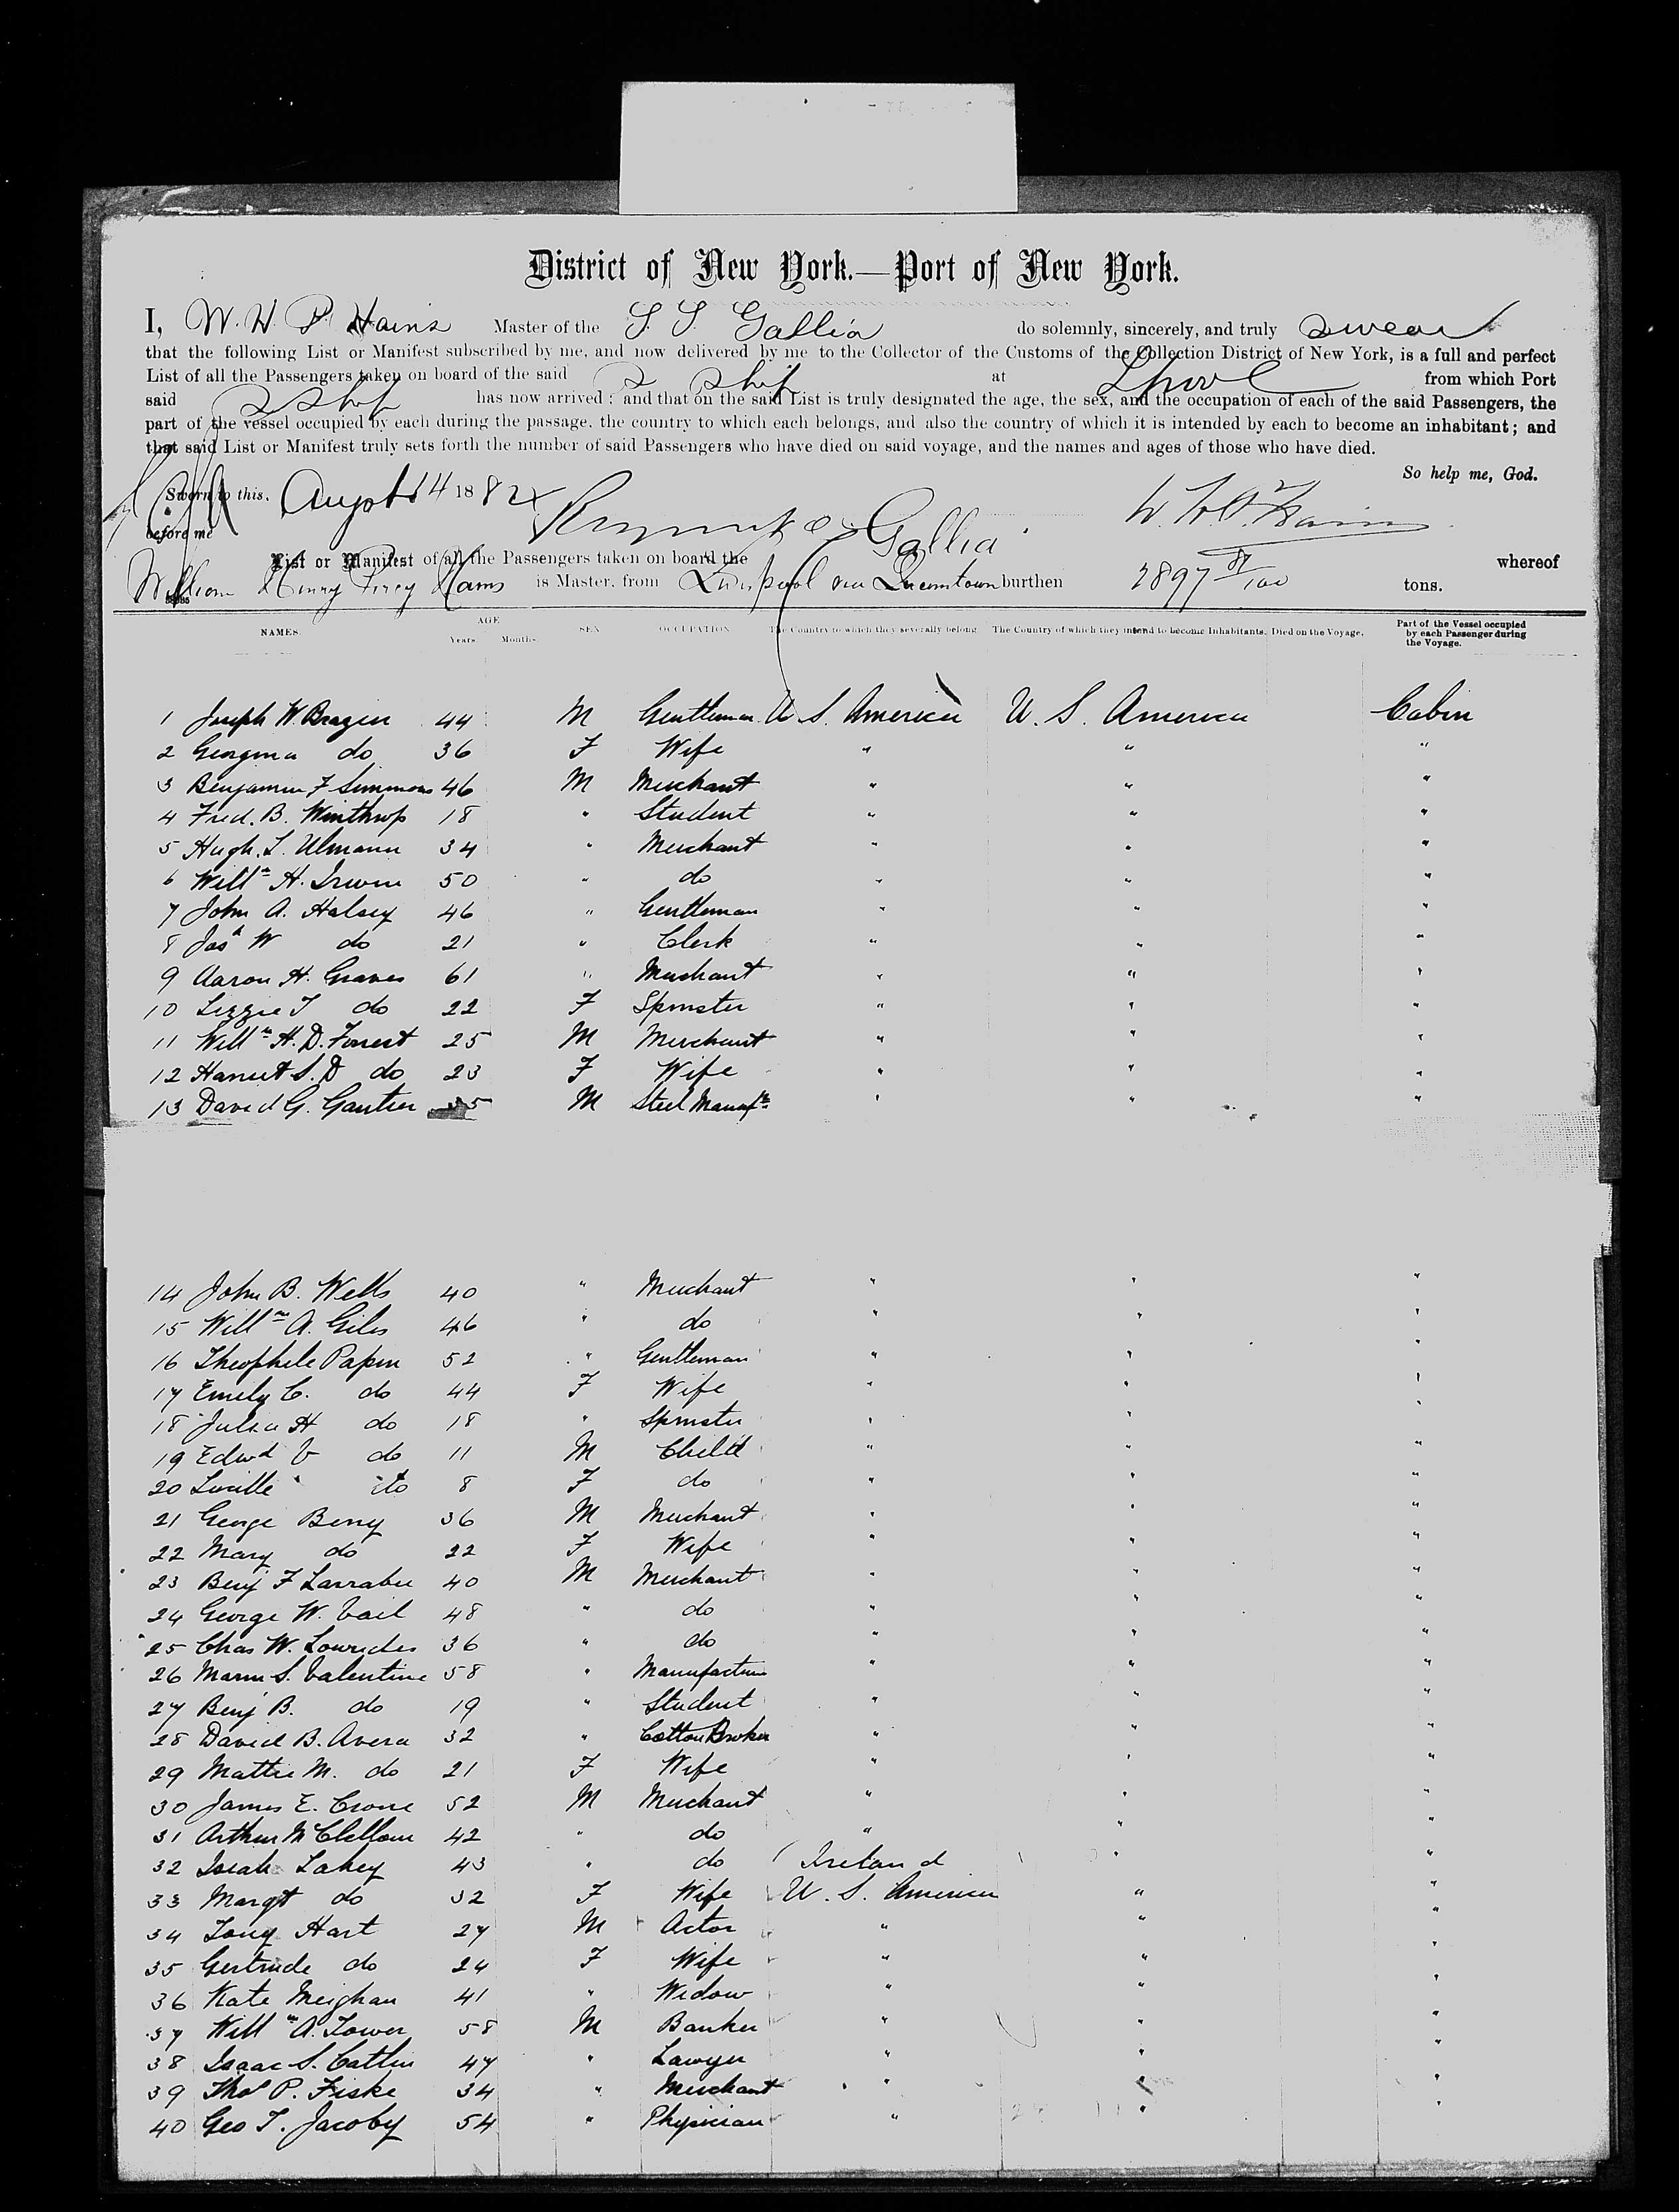 District of New York.—Port of New York.
I, W. H. P. Hains Master of the S. S. Gallia do solemnly, sincerely, and truly swear
that the following List or Manifest subscribed by me, and now delivered by me to the Collector of the Customs of the Collection District of New York, is a full and perfect
List of all the Passengers taken on board of the said S Ship at Lpool from which Port
said S Ship has now arrived: and that on the said List is truly designated the age, the sex, and the occupation of each of the said Passengers, the
part of the vessel occupied by each during the passage, the country to which each belongs, and also the country of which it is intended by each to become an inhabitant; and
that said List or Manifest truly sets forth the number of said Passengers who have died on said voyage, and the names and ages of those who have died.
So help me, God.
Sworn to this, August 14 1882 W. H. P. Hains
before me
List or Manifest of all the Passengers taken on board the Gallia whereof
William Henry Hains is Master, from Liverpool via Queenstown burthen 2897 tons.
NAMES. AGE Years. Months. SEX OCCUPATION The Country to which they severally belong The Country of which they intend to become Inhabitants. Died on the Voyage. Part of the Vessel occupied by each Passenger during the Voyage.
1 Joseph W. 44 M Gentleman U. S. America U. S. America Cabin
2 Georgina do 36 F Wife " " "
3 Benjamin F Simmons 46 M Merchant " " "
4 Fred. B. Winthrop 18 " Student " " "
5 Hugh. L. Ulmann 34 " Merchant " " "
6 Willm H. Irwin 50 " do " " "
7 John A. Halsey 46 " Gentleman " " "
8 Jos W do 21 " Clerk " " "
9 Aaron H. Graves 61 " Merchant " " "
10 Lizzie T do 22 F Spinster " " "
11 Willm H. D. Forrest 25 M Merchant " " "
12 Harriet S. D do 23 F Wife " " "
13 David G. Gautier 55 M Steel Manufr " " "
14 John B. Wells 40 " Merchant " " "
15 Willm A. Giles 46 " do " " "
16 Theophile Papin 52 " Gentleman " " "
17 Emily C. do 44 F Wife " " "
18 Julia H do 18 " Spinster " " "
19 Edwd V do 11 M Child " " "
20 Lucille do 8 F do " " "
21 George Berry 36 M Merchant " " "
22 Mary do 22 F Wife " " "
23 Benj F Larrabee 40 M Merchant " " "
24 George W. Vail 48 " do " " "
25 Chas W. 36 " do " " "
26 S. Valentine 58 " Manufacturer " " "
27 Benj B. do 19 " Student " " "
28 David B. Avera 32 " Cotton Broker " " "
29 Mattie M. do 21 F Wife " " "
30 James E. Crone 52 M Merchant " " "
31 Arthur McClellan 42 " do " " "
32 Isiah Lahey 43 " do Ireland " "
33 Margt do 32 F Wife U. S. America " "
34 Tony Hart 27 M Actor " " "
35 Gertrude do 24 F Wife " " "
36 Kate Meighan 41 " Widow " " "
37 Willm A. Tower 58 M Banker " " "
38 Isaac S. Catlin 47 " Lawyer " " "
39 Thos P. Fiske 34 " Merchant " " "
40 Geo T. Jacoby 54 " Physician " " "